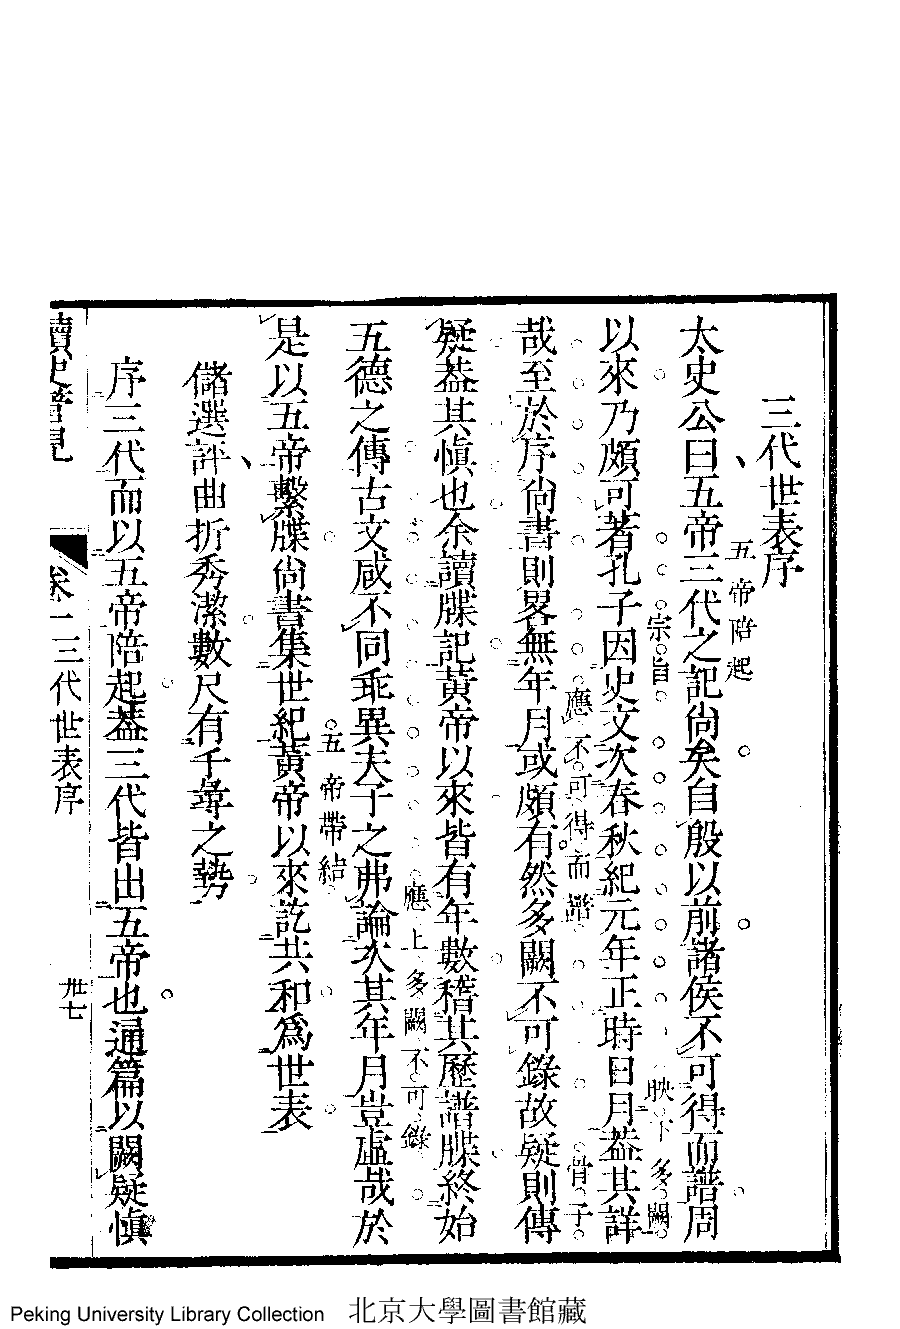 三代世表序
五帝陪起
太史公曰五帝三代之記尚矣自殷以前諸侯不可得而譜周
宗旨
映下多闕
以來乃頗可著孔子因史文次春秋紀元年正時日月葢其詳
應不可得而譜
骨子
哉至於序尚書則畧無年月或頗有然多闕不可錄故疑則傳
疑葢其慎也余讀牒記黃帝以來皆有年數稽其歷譜牒終始
應上多闕不可錄
五德之傳古文咸不同乖異夫子之弗論次其年月豈虛哉於
五帝帶結
是以五帝繫牒尚書集世紀黃帝以來訖共和為世表
儲選評曲折秀潔數尺有千尋之勢
序三代而以五帝陪起葢三代皆出五帝也通篇以闕疑慎
讀史管見
卷一三代世表序
卅七
Peking University Library Collection 北京大學圖書館藏